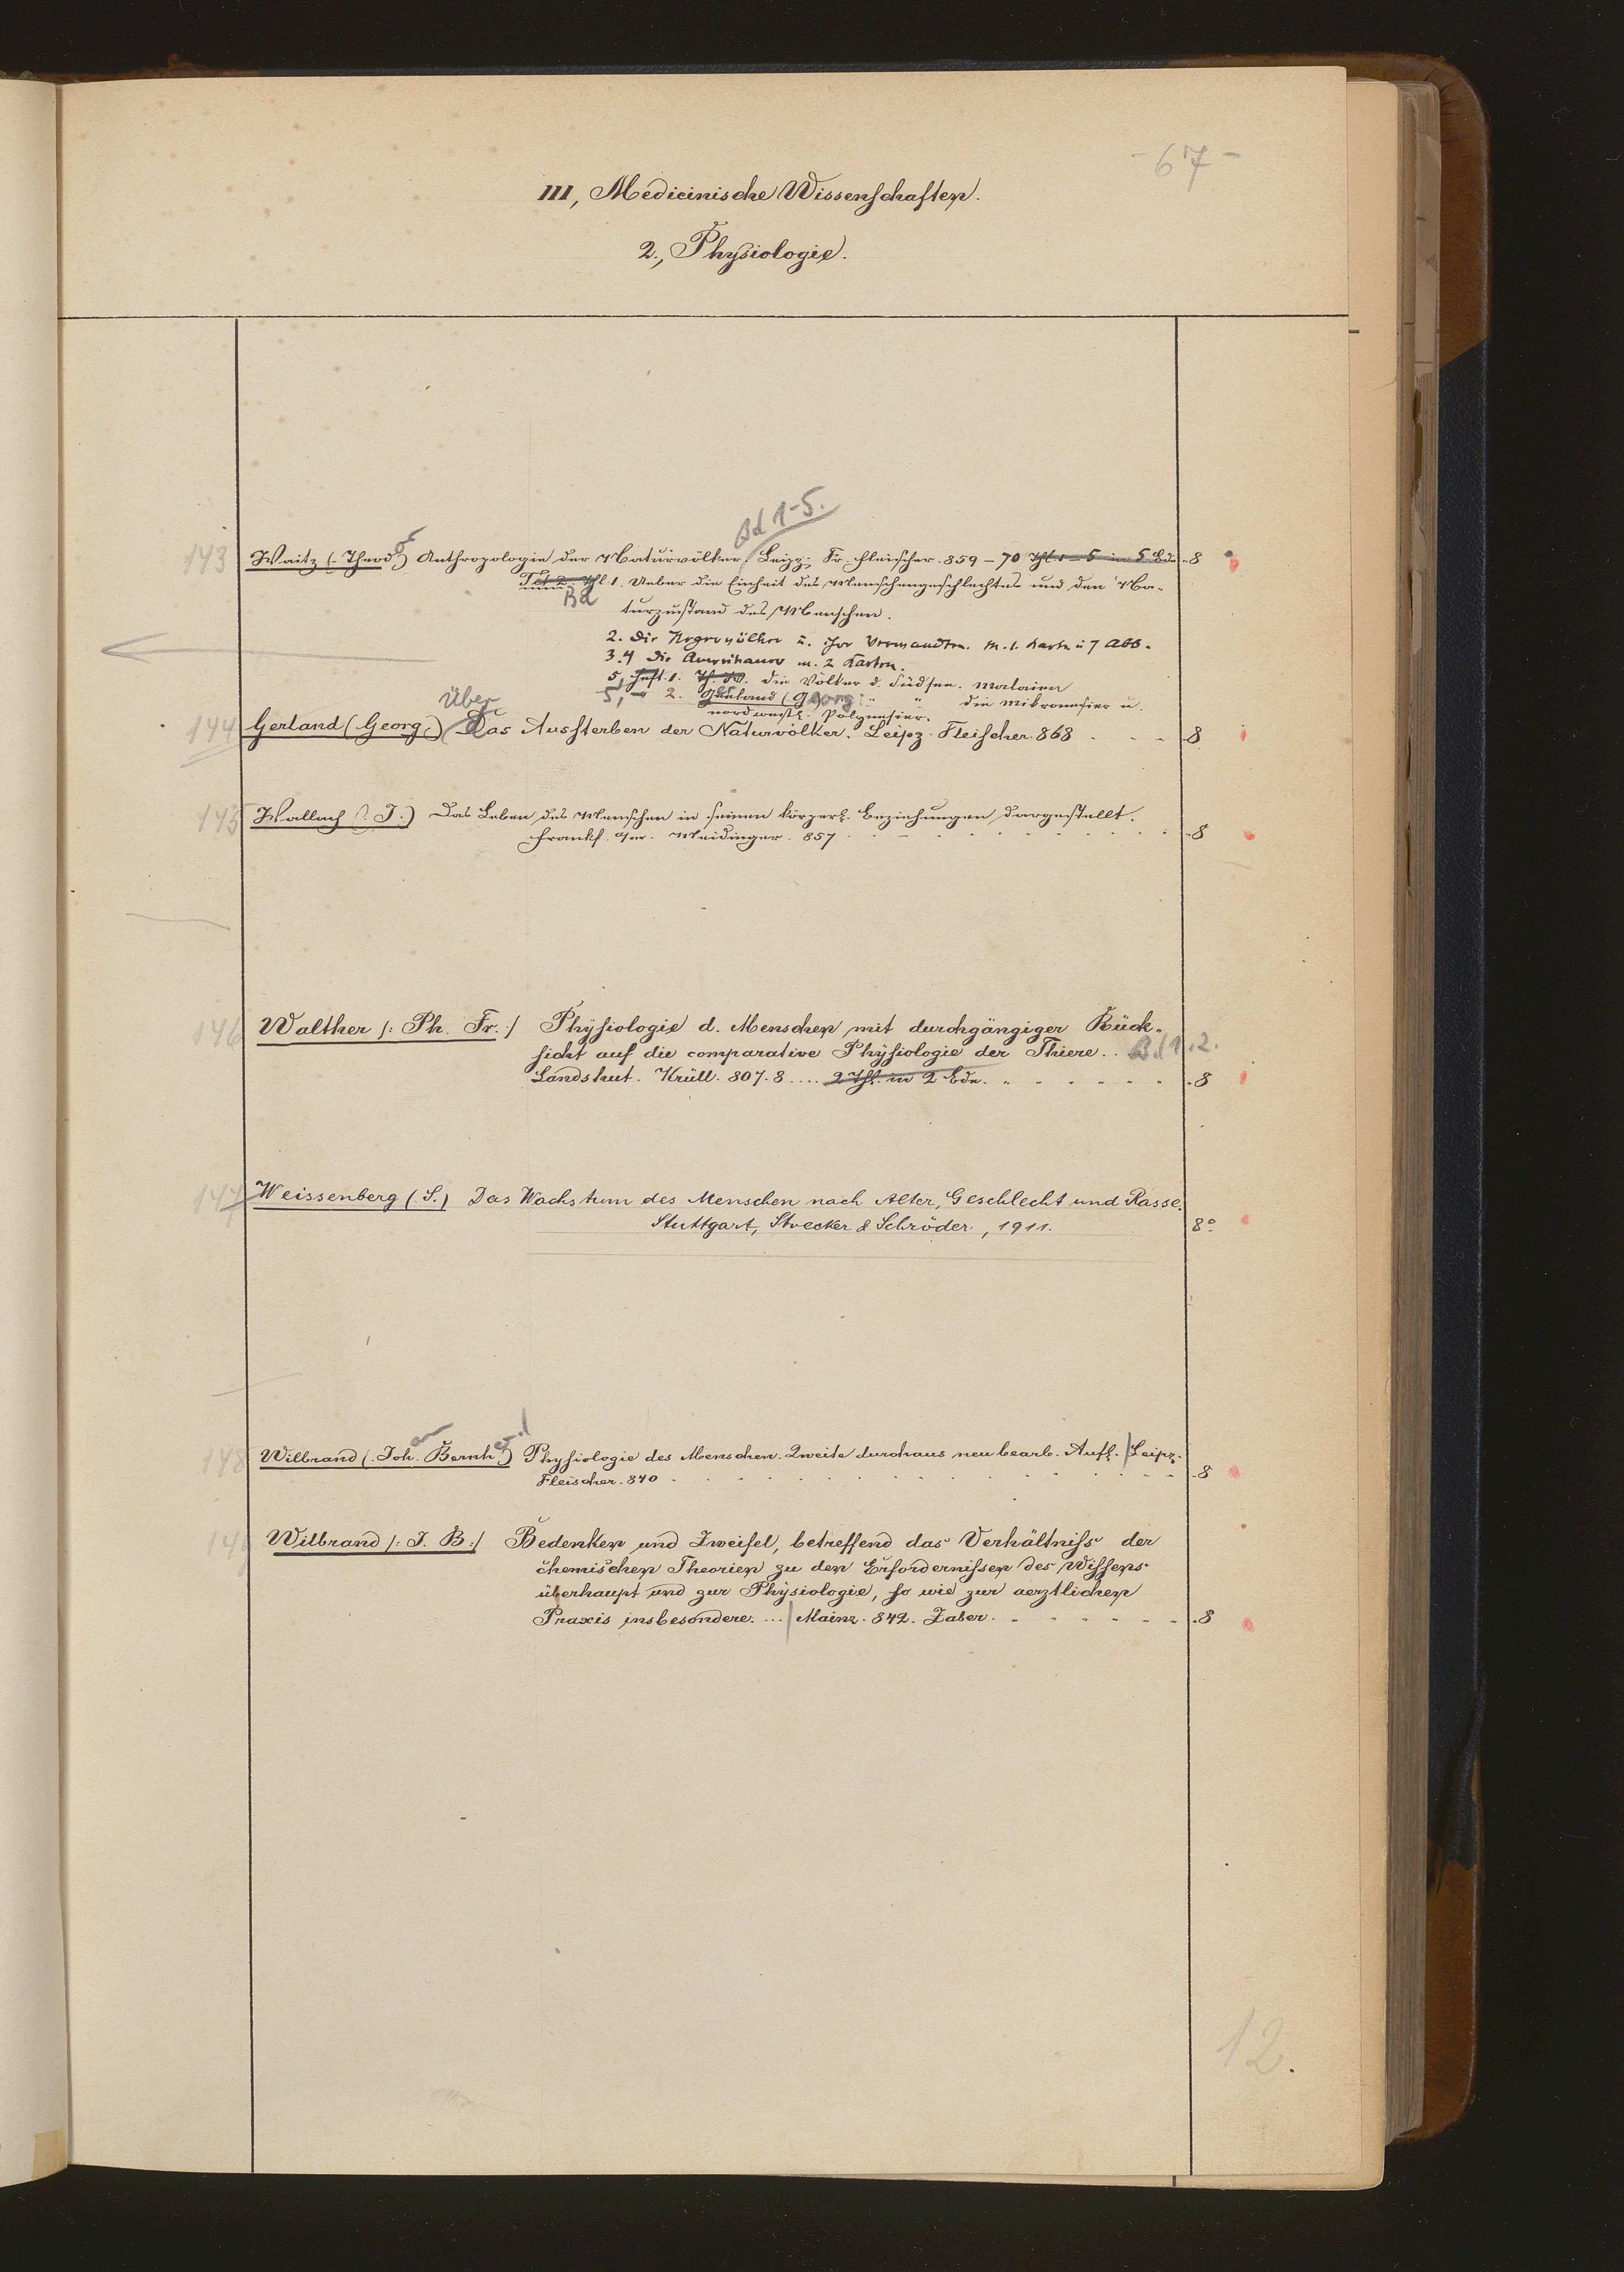 - 67 -
III, Medicinische Wissenschaften.
2., Physiologie.
Bd 1-5.
143 Waitz (. Theodor) Anthropologie der Naturvölker. Leipz. Fr. Fleischer. 859 – 70 Thl 1 – 5 in 5 Bde .8
Thl 1. Ueber die Einheit des Menschengeschlechtes und den Na-
Bd
turzustand des Menschen.
2. Die Negervölker u. ihre Verwandten. M. 1. Karte u 7 Abb.
3.4 Die Amerikaner m. 2 Karten.
5 Heft. 1. Die Völker d. Südsee. Malaien
5, 2. Gerland (Georg) " " die Mikronesier u.
nordwestl. Polynesier.
144 Gerland (Georg.) Über Das Aussterben der Naturvölker. Leipz. Fleischer. 868 .8
145 Wallach (. J.) Das Leben des Menschen in seinen körperl. Beziehungen dargestellt.
Frankf. a/m. Meidinger. 857 .8
146 Walther /: Ph. Fr. :/ Physiologie d. Menschen mit durchgängiger Rück-
sicht auf die comparative Physiologie der Thiere. . Bd 1.2.
Landshut. Krüll. 807.8 .... 2 Thl. in 2 Bde. .8
147 Weissenberg (. S.) Das Wachstum des Menschen nach Alter, Geschlecht und Rasse.
Stuttgart, Strecker & Schröder, 1911. 8°
148 Wilbrand (. Joh. Bernh.) Physiologie des Menschen. Zweite durchaus neu bearb. Aufl. | Leipz.
Fleischer. 840 .8
Wilbrand /: J. B :/ Bedenken und Zweifel, betreffend das Verhältniss der
chemischen Theorien zu den Erfordernissen des Wissens
überhaupt und zur Physiologie, so wie zur aerztlichen
Praxis insbesondere. ... | Mainz. 842. Zaber. .8
12.